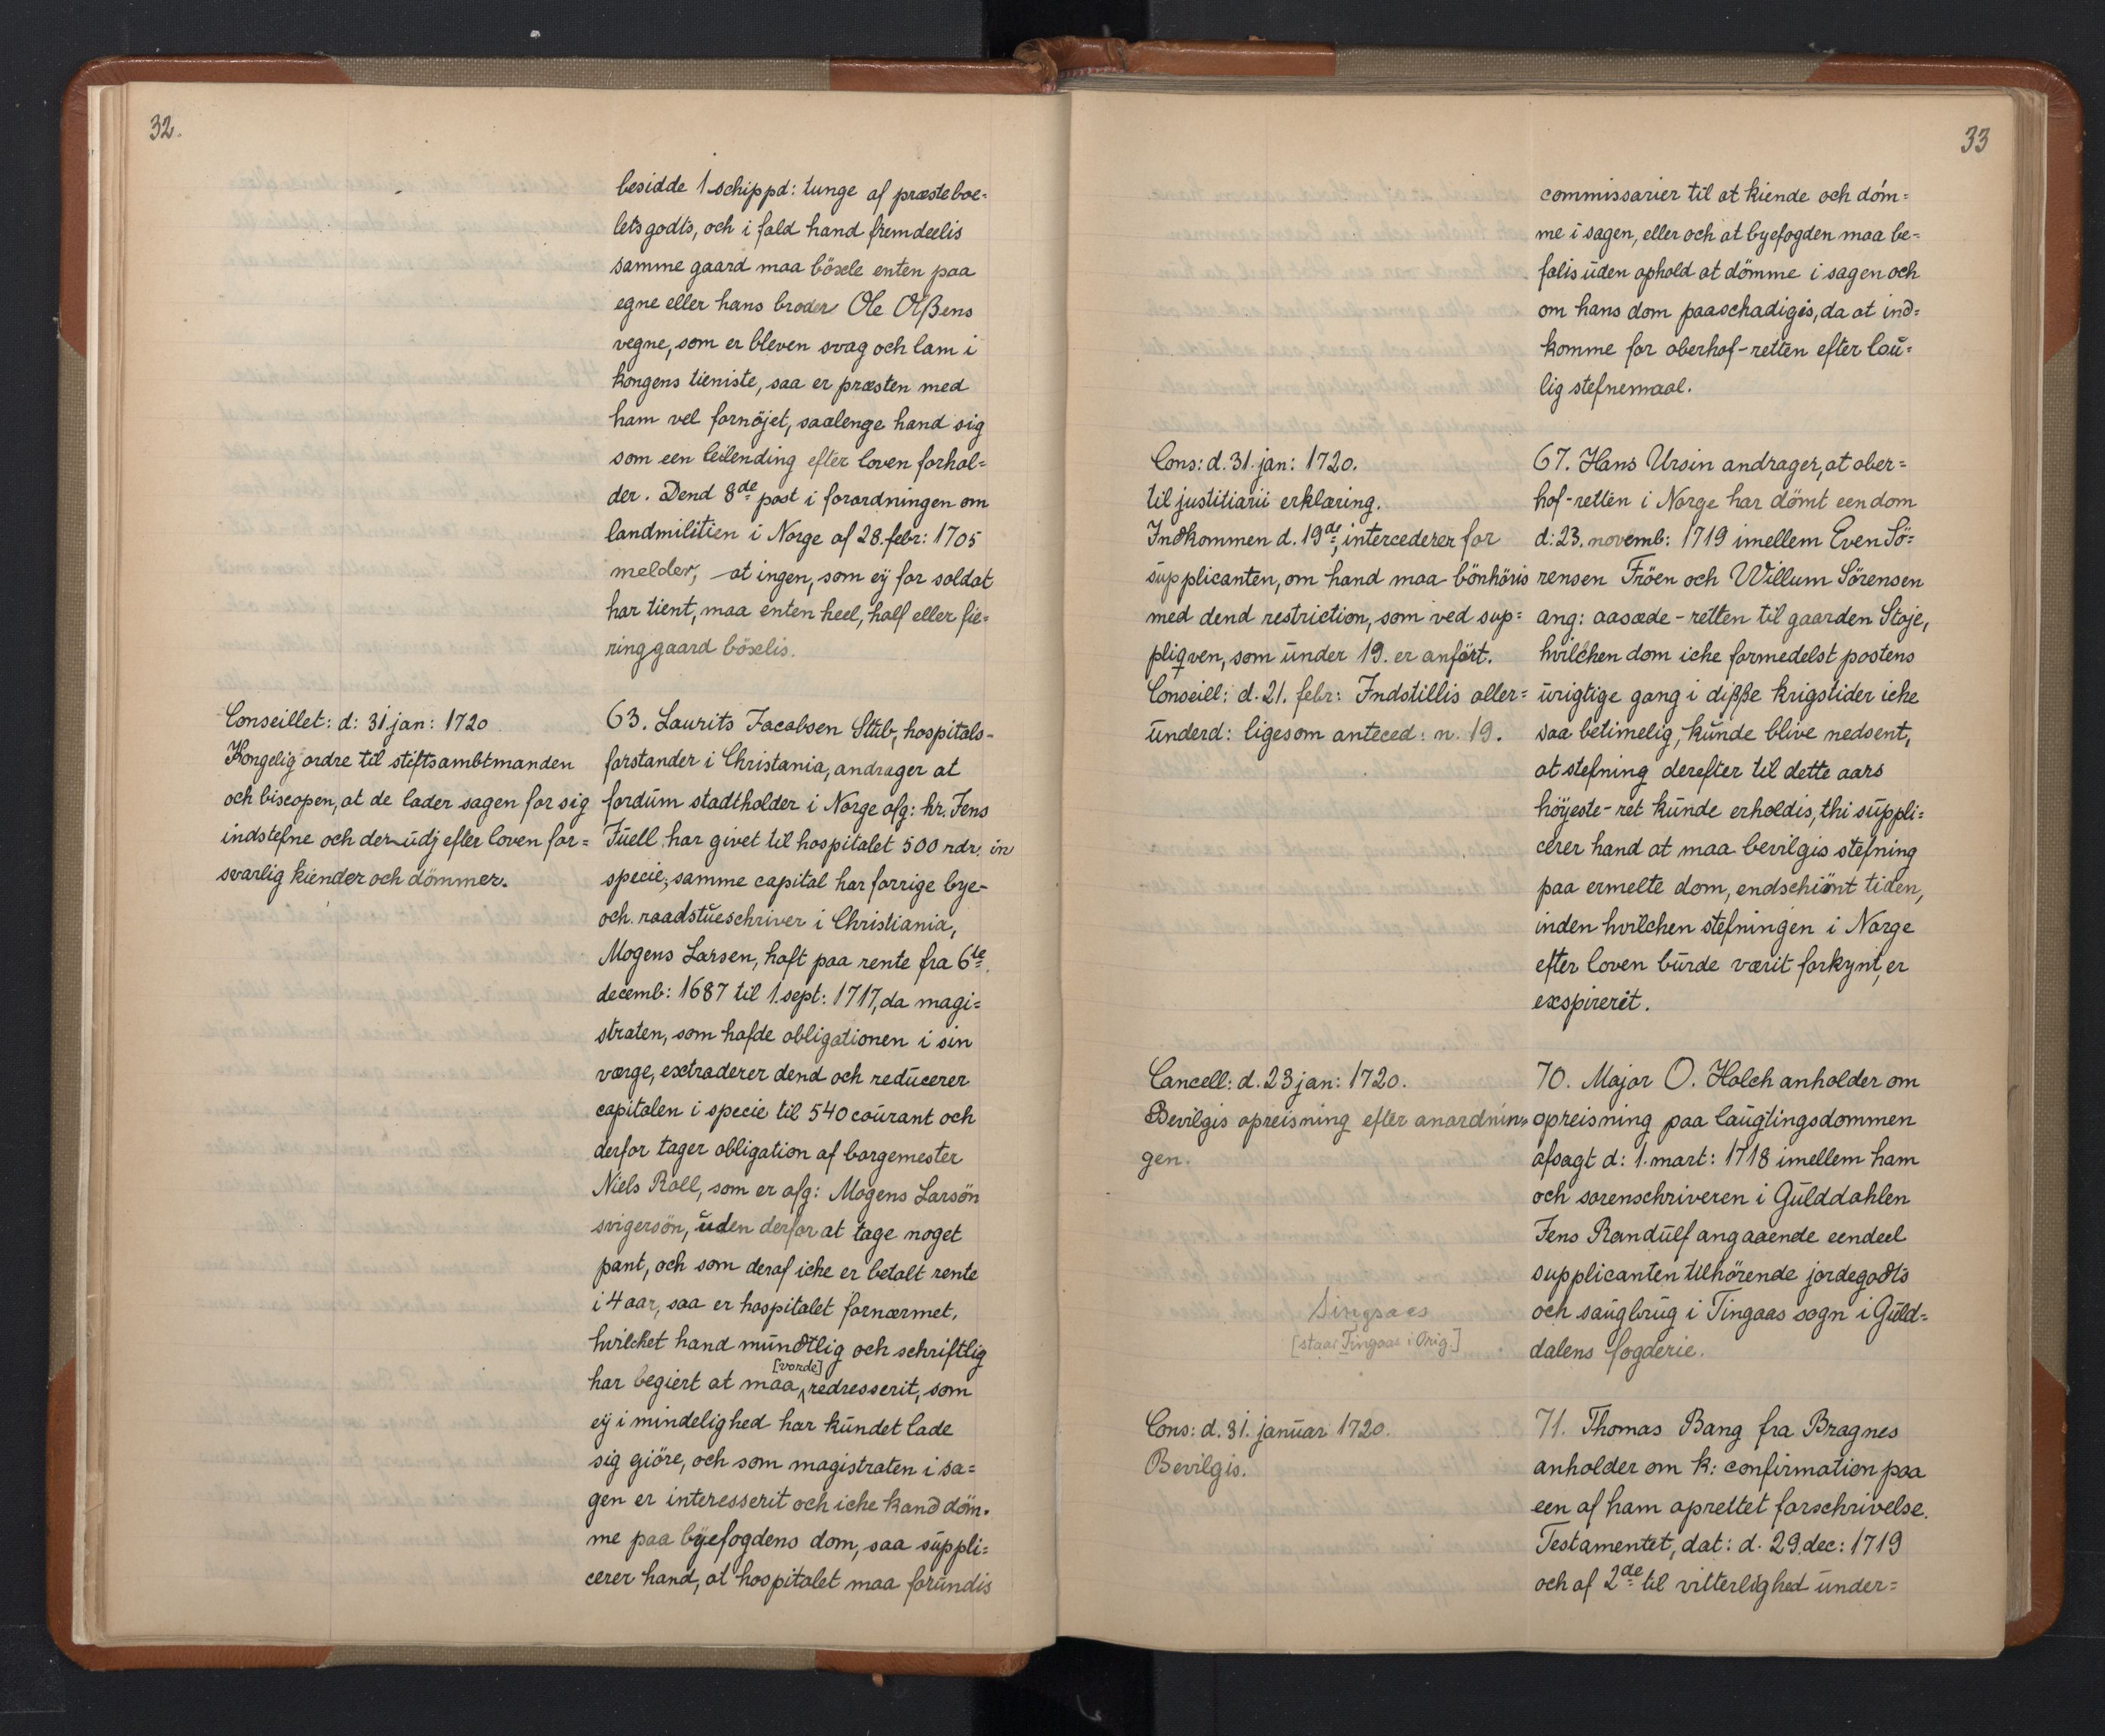 32.
besidde 1 schippd: tunge af præsteboe=
lets gods, och i fald hand fremdeelis
samme gaard maa böxele enten paa
egne eller hans broder Ole Olßens
vegne, som er bleven svag och lam i
kongens tieniste, saa er præsten med
ham vel fornöjet, saalenge hand sig
som een leilending efter loven forhol=
der. Dend 8de post i forordningen om
landmilitien i Norge af 28. febr: 1705
melder, at ingen, som eÿ for soldat
har tient, maa enten heel, half eller fie=
ring gaard böxelis.
Conseillet: d: 31 jan: 1720
Kongelig ordre til stiftsambtmanden
och biscopen, at de lader sagen for sig
indstefne och der udj efter loven for=
svarlig kiender och dömmer.
63. Laurits Jacobsen Stub, hospitals-
forstander i Christania, andrager at
fordum stadtholder i Norge afg: hr. Jens
Juell har givet til hospitalet 500 rdr. in
specie, samme capital har forrige bye-
och raadstueschriver i Christiania,
Mogens Larsen, haft paa rente fra 6te
decemb: 1687 til 1. sept: 1717, da magi=
straten, som hafde obligationen i sin
værge, extraderer dend och reducerer
capitalen i specie til 540 courant och
derfor tager obligation af borgemester
Niels Roll, som er afg: Mogens Larsön
svigersön, uden derfor at tage noget
pant, och som deraf iche er betalt rente
i 4 aar, saa er hospitalet fornærmet,
hvilchet hand mundtlig och schriftlig
[vorde]
har begiert at maa redresserit, som
eÿ i mindelighed har kundet lade
sig giöre, och som magistraten i sa=
gen er interesserit och iche kand döm=
me paa byefogdens dom, saa suppli=
cerer hand, at hospitalet maa forundis
33
commissarier til at kiende och döm=
me i sagen, eller och at byefogden maa be=
falis uden ophold at dömme i sagen och
om hans dom paaschadigis, da at ind=
komme for oberhof-retten efter lou=
lig stefnemaal.
Cons: d. 31. jan: 1720.
til justitiarii erklæring.
Indkommen d. 19de, intercederer for
supplicanten, om hand maa bönhöris
med dend restriction, som ved sup=
pliqven, som under 19. er anfört.
Conseill: d. 21. febr: Indstillis aller=
underd: ligesom anteced: n. 19.
67. Hans Ursin andrager, at ober=
hof-retten i Norge har dömt een dom
d: 23. novemb: 1719 imellem Even Sö=
rensen Fröen och Willum Sörensen
ang: aasæde-retten til gaarden Staje,
hvilchen dom iche formedelst postens
urigtige gang i dißße krigstider iche
saa betimelig, kunde blive nedsent,
at stefning derefter til dette aars
höyeste-ret kunde erholdis, thi suppli=
cerer hand at maa bevilgis stefning
paa ermelte dom, endschiönt tiden,
inden hvilchen stefningen i Norge
efter loven burde værit forkynt, er
exspirerit.
Cancell: d. 23 jan: 1720.
Bevilgis opreisning efter anordnin=
gen.
70. Major O. Holch anholder om
opreisning paa laugtingsdommen
afsagt d: 1. mart: 1718 imellem ham
och sorenschriveren i Gulddahlen
Jens Randulf angaaende eendeel
supplicanten tilhörende jordegodts
och saugbrug i Tingaas sogn i Guld=
dalens fogderie.
Singsaas
[staar Tingaas i Orig]
Cons: d. 31. januar 1720.
Bevilgis.
71. Thomas Bang fra Bragnes
anholder om k: confirmation paa
een af ham oprettet forschrivelse.
Testamentet, dat: d. 29. dec: 1719
och af 2de til vitterlighed under=